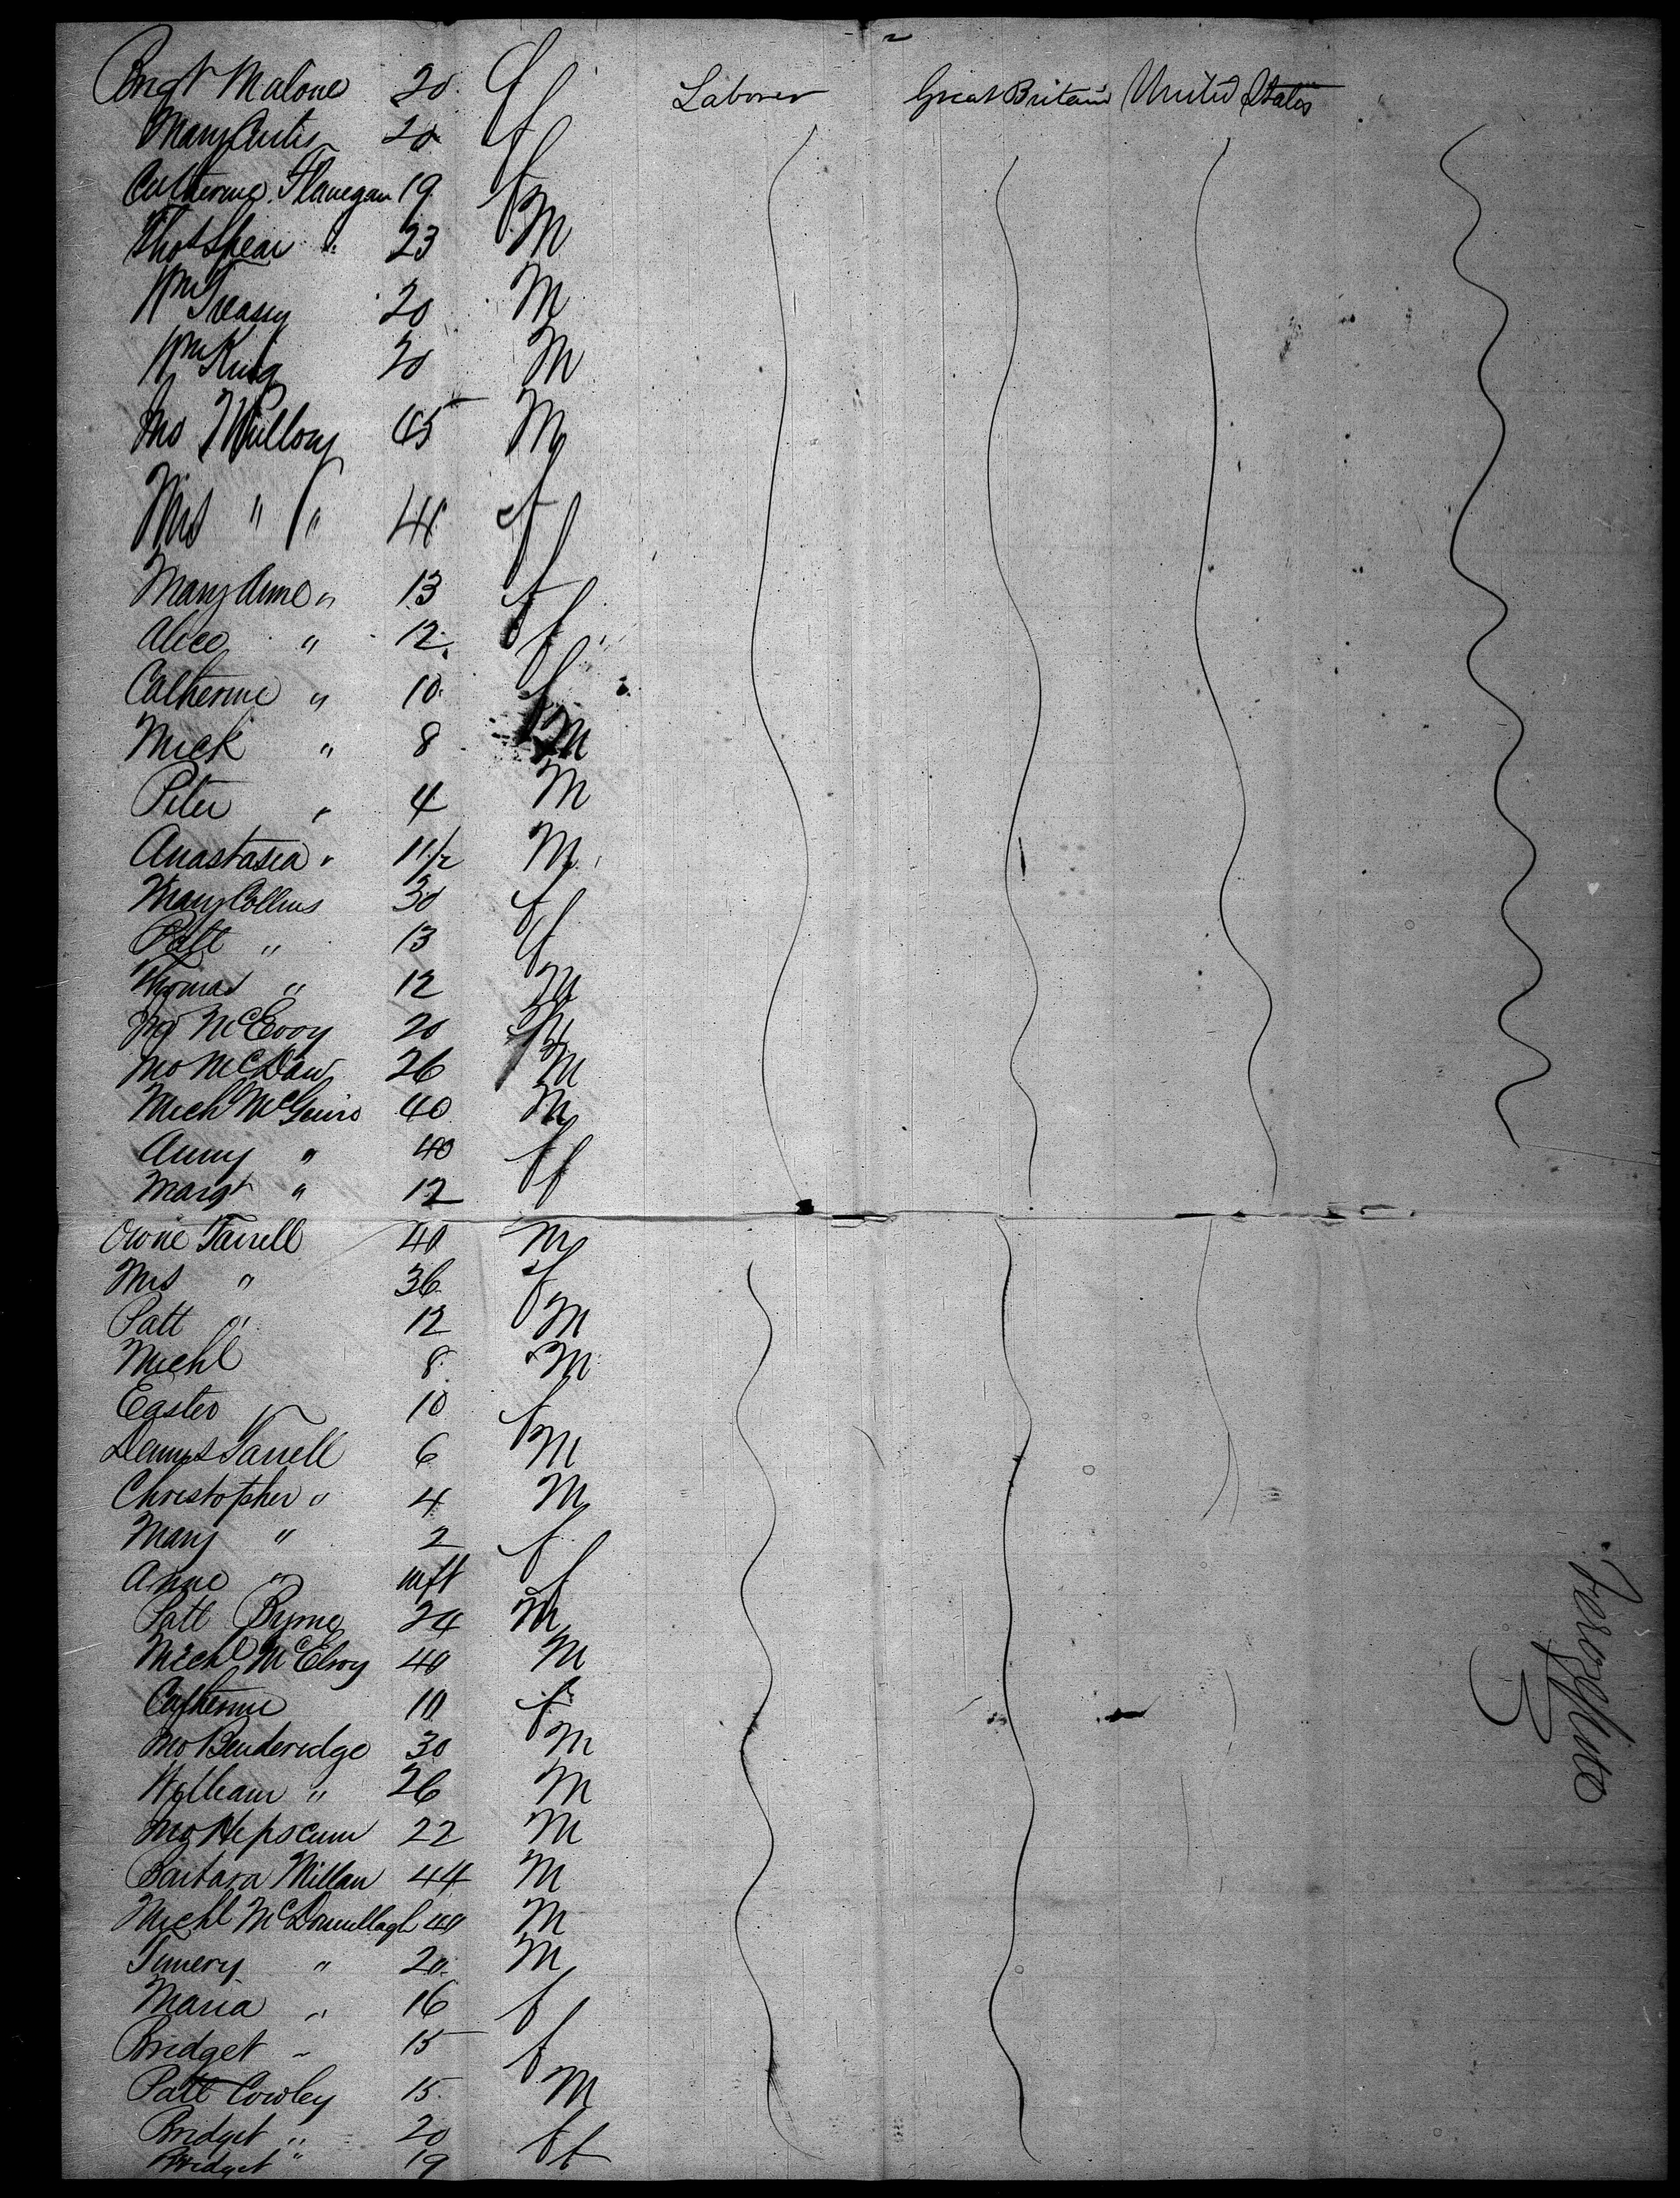 2
Brigt Malone 20 f Laborer Great Britain United States
Mary Curtis 20 f
Catherine Flanegan 19 f
Thos Spear " 23 M
Wm Treasy 20 M
Wm King 20 M
Jno 45 M
Mrs " " 40 f
Mary Anne " 13 f
Alice " 12 f
Catherine " 10 f
Mick " 8 M
Peter " 4 M
Anastasia " 1 1/2 M
Mary Collins 30 f
Patt " 13 f
Thomas " 12 M
Jno McEvoy 20 M
Jno McDaw 26 M
Mich McGuire 40 M
Anny " 40 f
Margt " 12 f
Owne Farrell 40 M
Mrs " 36 f
Patt " 12 M
Michl 8 M
Easter 10 f
Dennis Farrell 6 M
Christopher " 4 M
Mary " 2 f
Anne " inft f
Patt Byrne 24 M
Michl McElroy 40 M
Catherine 10 f
Jno Benderidge 30 M
William " 26 M
Jno Hepscum 22 M
Barbara Millan 44 M
Michl McDonnellagh 40 M
" 20 M
Maria " 16 f
Bridget " 15 f
Patt Cowley 15 M
Bridget " 20 f
Bridget " 19 f